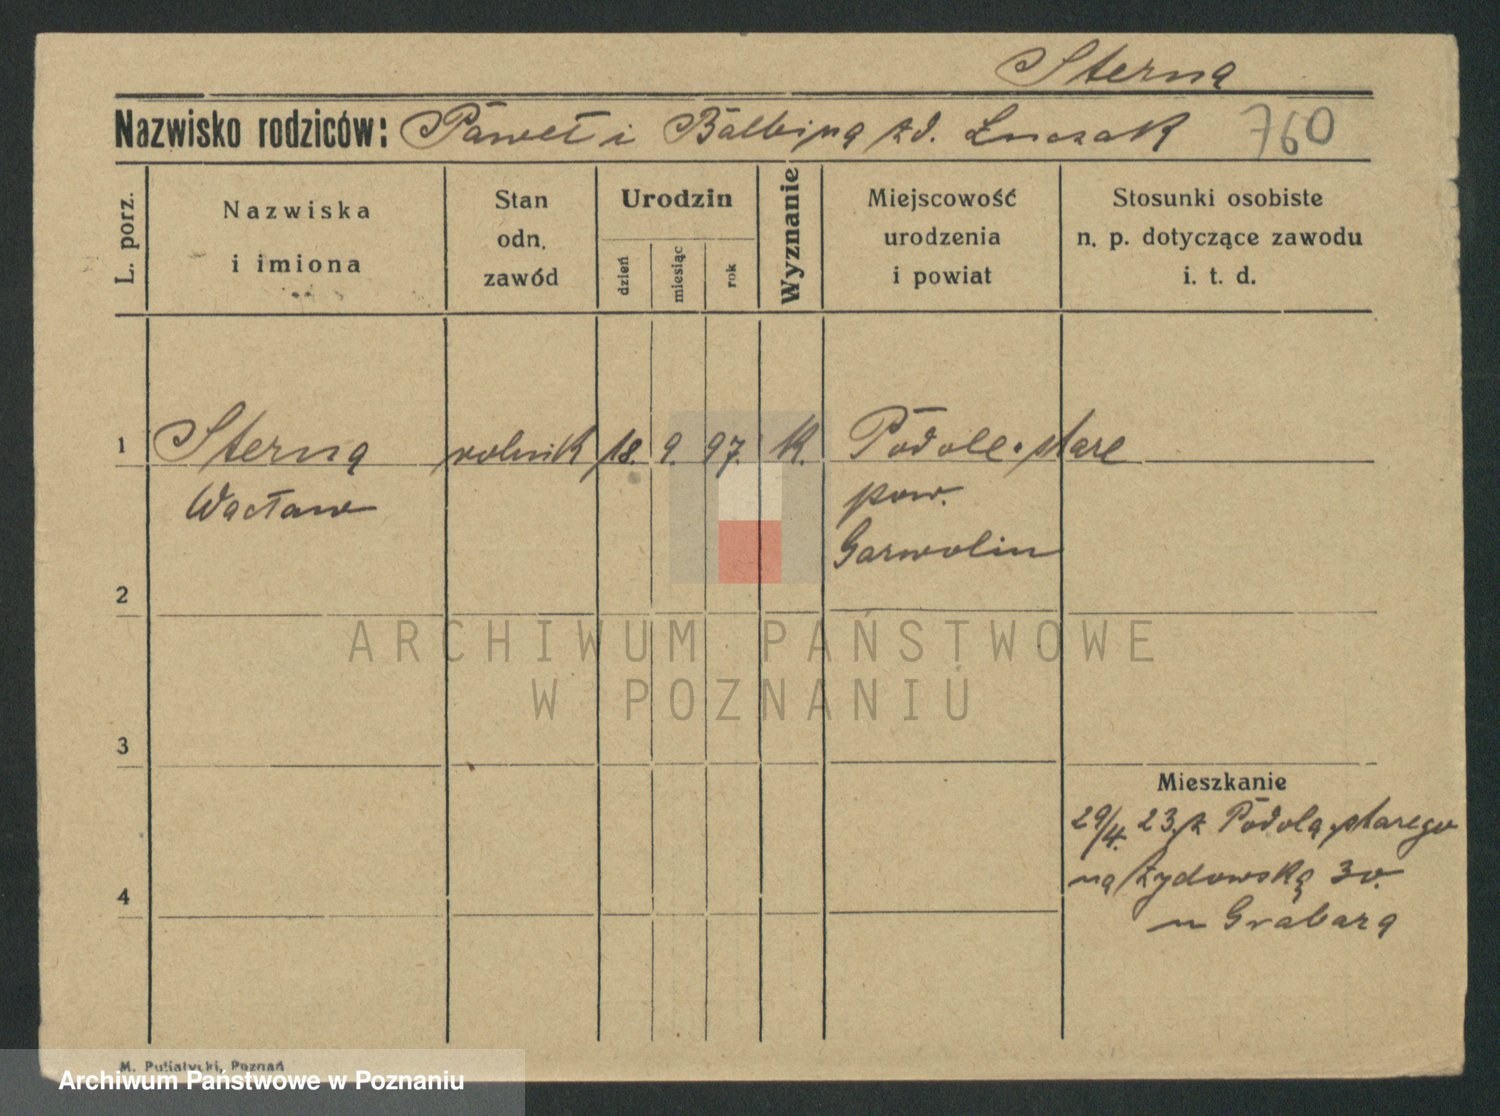 Sterna
Nazwisko rodziców: Paweł i Balbina zd. Łuczak 760
L. porz.
Nazwiska
i imiona
Stan
odn.
zawód
Urodzin
dzień
miesiąc
rok
Wyznanie
Miejscowość
urodzenia
i powiat
Stosunki osobiste
n. p. dotyczące zawodu
i. t. d.
1 Sterna rolnik 18. 9. 97. k. Podole stare
Wacław pow.
Garwolin
2
ARCHIWUM PAŃSTWOWE
W POZNANIU
3
Mieszkanie
29/4. 23. z Podola starego
na Żydowską 30.
u Grabara
4
M. Putiatycki, Poznań
Archiwum Państwowe w Poznaniu